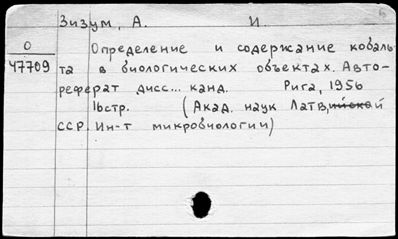 Зизум, А. И.
О Определение и содержание кобаль-
47709 та в биологических объектах. Авто-
реферат дисс... канд. Рига, 1956
16стр. (Акад. наук Латвийской
ССР. Ин-т микробиологии)